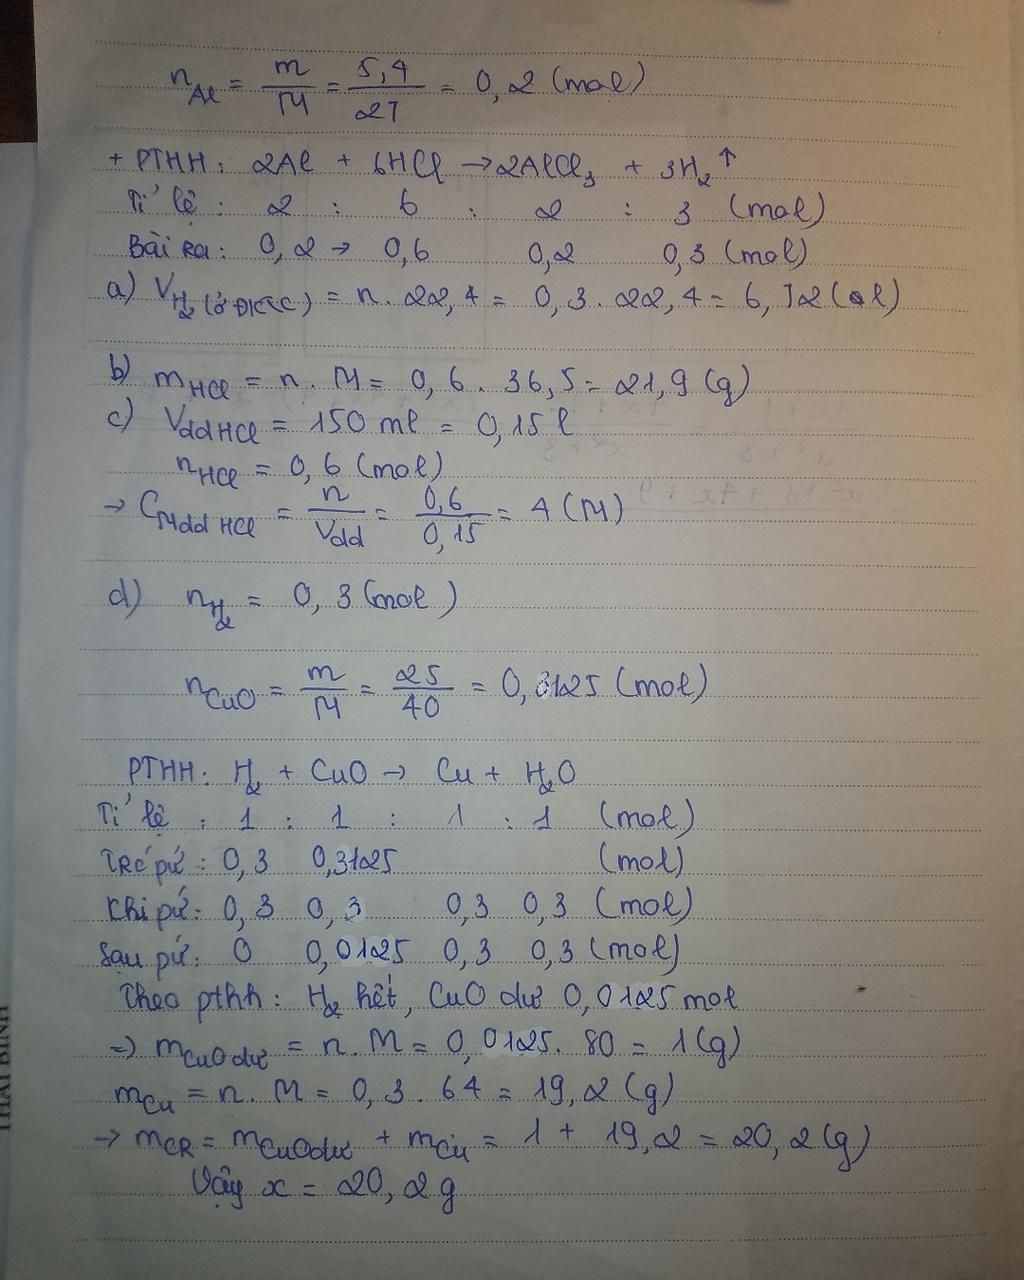 n_Al = m/M = 5,4/27 = 0,2 (mol)
+ PTHH: 2Al + 6HCl → 2AlCl₃ + 3H₂↑
Tỉ lệ: 2 : 6 : 2 : 3 (mol)
Bài ra: 0,2 → 0,6 0,2 0,3 (mol)
a) V_H₂ (ở ĐKTC) = n . 22,4 = 0,3 . 22,4 = 6,72 (l)
b) m_HCl = n . M = 0,6 . 36,5 = 21,9 (g)
c) V_ddHCl = 150 ml = 0,15 l
n_HCl = 0,6 (mol)
→ C_M dd HCl = n/V_dd = 0,6/0,15 = 4 (M)
d) n_H₂ = 0,3 (mol)
n_CuO = m/M = 25/40 = 0,3125 (mol)
PTHH: H₂ + CuO → Cu + H₂O
Tỉ lệ : 1 : 1 : 1 : 1 (mol)
Trc pứ: 0,3 0,3125 (mol)
Khi pứ: 0,3 0,3 0,3 0,3 (mol)
Sau pứ: 0 0,0125 0,3 0,3 (mol)
Theo pthh: H₂ hết, CuO dư 0,0125 mol
=) m_CuO dư = n . M = 0,0125 . 80 = 1 (g)
m_Cu = n . M = 0,3 . 64 = 19,2 (g)
→ m_CR = m_CuO dư + m_Cu = 1 + 19,2 = 20,2 (g)
Vậy x = 20,2 g
THÁI BÌNH